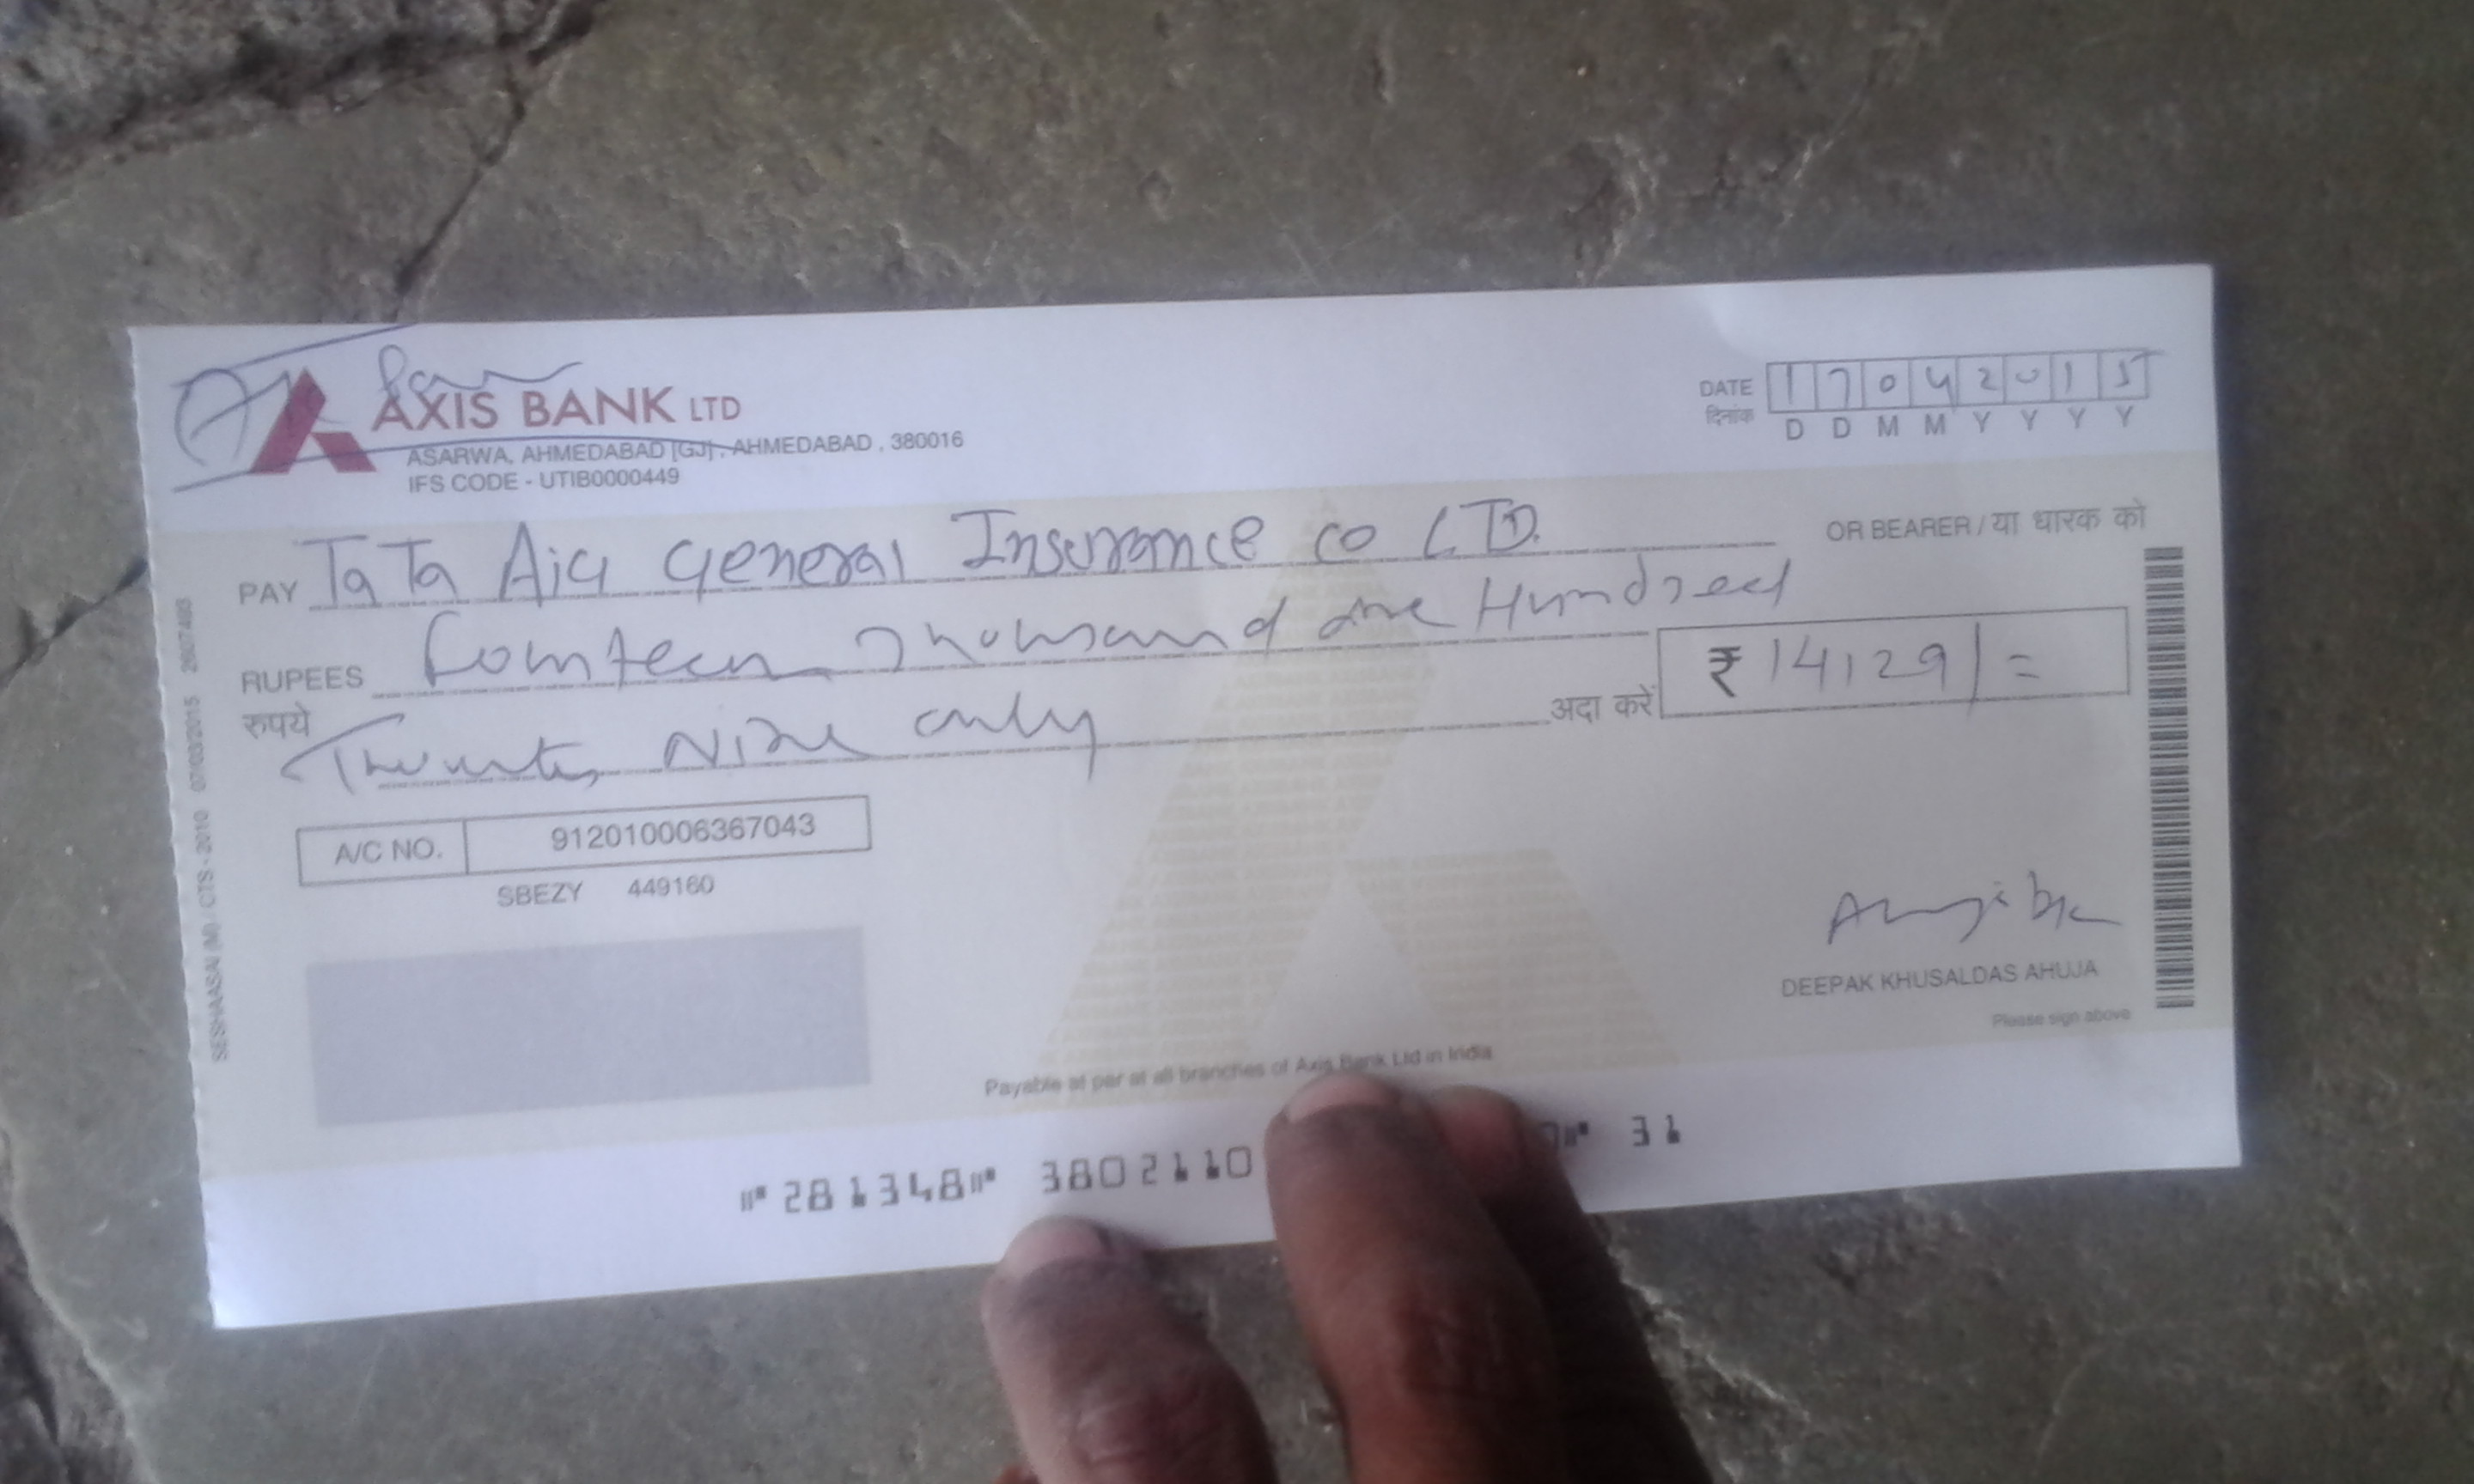 AXIS BANK LTD
ASARWA, AHMEDABAD [GJ], AHMEDABAD, 380016
IFS CODE - UTIB0000449
DATE 17042015
दिनांक D D M M Y Y Y Y
PAY TaTa Aig General Insurance co LTD. OR BEARER / या धारक को
RUPEES fourteen Thousand one Hundred
रुपये Twenty Nine only अदा करें ₹ 14129/=
A/C NO. 912010006367043
SBEZY 449160
DEEPAK KHUSALDAS AHUJA
Please sign above
Payable at par at all branches of Axis Bank Ltd in India
281348 3802110 31
SESHAASAI (M) / CTS - 2010 07/03/2015